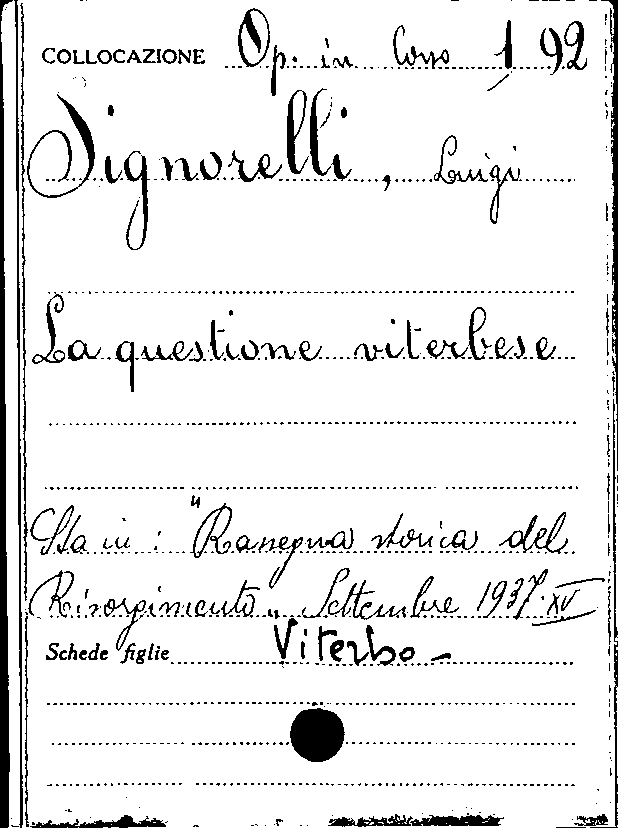 COLLOCAZIONE Op. in Corso 1 92
Signorelli, Luigi
La questione viterbese
Sta in : "Rassegna storica del
Risorgimento„ Settembre 1937·XV
Schede figlie Viterbo –